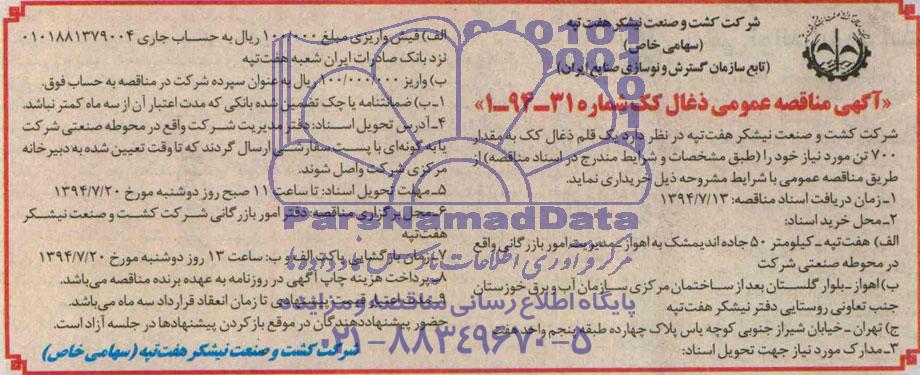 شرکت کشت و صنعت نیشکر هفت‌تپه
(سهامی خاص)
(تابع سازمان گسترش و نوسازی صنایع ایران)
«آگهی مناقصه عمومی ذغال کک شماره ۳۱-۹۴-۱»
شرکت کشت و صنعت نیشکر هفت‌تپه در نظر دارد یک قلم ذغال کک به مقدار
۷۰۰ تن مورد نیاز خود را (طبق مشخصات و شرایط مندرج در اسناد مناقصه) از
طریق مناقصه عمومی با شرایط مشروحه ذیل خریداری نماید.
۱-زمان دریافت اسناد مناقصه: ۱۳۹۴/۷/۱۳
۲-محل خرید اسناد:
الف) هفت‌تپه-کیلومتر ۵۰ جاده اندیمشک به اهواز-مدیریت امور بازرگانی واقع
در محوطه صنعتی شرکت
ب) اهواز-بلوار گلستان بعد از ساختمان مرکزی سازمان آب و برق خوزستان
جنب تعاونی روستایی دفتر نیشکر هفت‌تپه
ج) تهران-خیابان شیراز جنوبی کوچه یاس پلاک چهارده طبقه پنجم واحد هفت
۳-مدارک مورد نیاز جهت تحویل اسناد:
الف) فیش واریزی مبلغ ۱۰۰/۰۰۰ ریال به حساب جاری ۰۱۰۱۸۸۱۳۷۹۰۰۴
نزد بانک صادرات ایران شعبه هفت‌تپه
ب) واریز ۱۰۰/۰۰۰/۰۰۰ ریال به عنوان سپرده شرکت در مناقصه به حساب فوق.
۱-ب) ضمانتنامه یا چک تضمین شده بانکی که مدت اعتبار آن از سه ماه کمتر نباشد.
۴-آدرس تحویل اسناد: دفتر مدیریت شرکت واقع در محوطه صنعتی شرکت
یا به گونه‌ای با پست سفارشی ارسال گردند که تا وقت تعیین شده به دبیرخانه
مرکزی شرکت واصل شوند.
۵-مهلت تحویل اسناد: تا ساعت ۱۱ صبح روز دوشنبه مورخ ۱۳۹۴/۷/۲۰
۶-محل برگزاری مناقصه: دفتر امور بازرگانی شرکت کشت و صنعت نیشکر
هفت‌تپه
۷-زمان بازگشایی پاکت الف و ب: ساعت ۱۳ روز دوشنبه مورخ ۱۳۹۴/۷/۲۰
۸-پرداخت هزینه چاپ آگهی در روزنامه به عهده برنده مناقصه می‌باشد.
۹-مدت اعتبار قیمت پیشنهادی تا زمان انعقاد قرارداد سه ماه می‌باشد.
حضور پیشنهاددهندگان در موقع باز کردن پیشنهادها در جلسه آزاد است.
شرکت کشت و صنعت نیشکر هفت‌تپه (سهامی خاص)
ParsNamadData
پایگاه اطلاع رسانی مناقصه و مزایده
۰۲۱-۸۸۳۴۹۶۷۰-۵